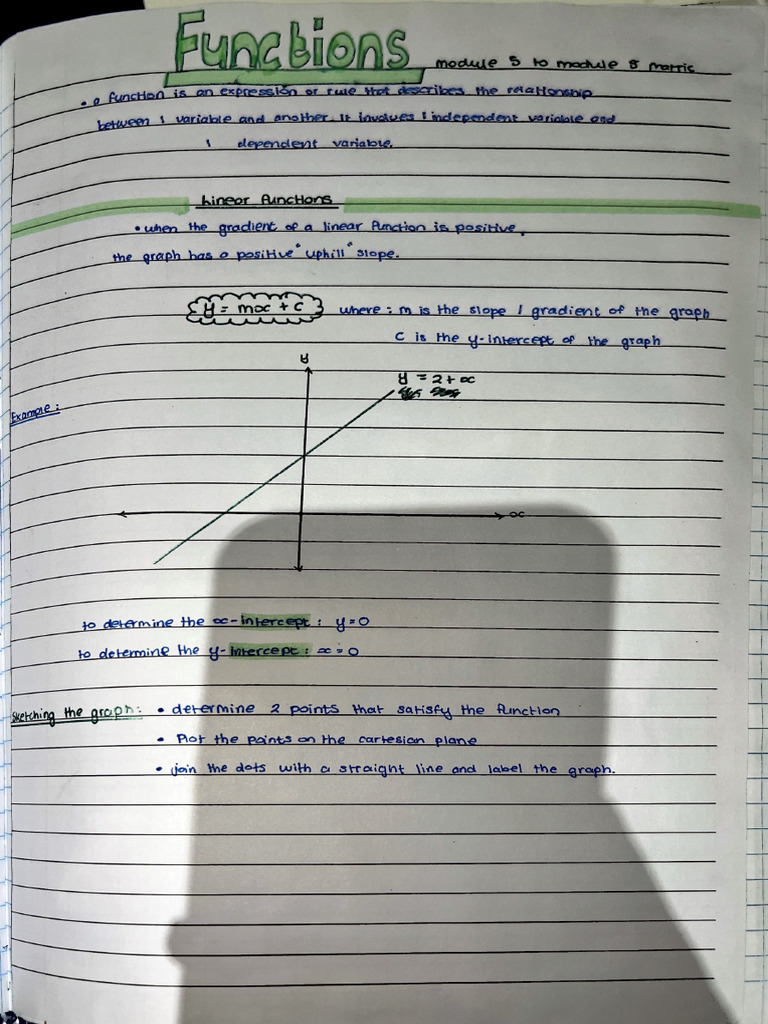 Functions module 5 to module 8 matric
• a function is an expression or rule that describes the relationship
between 1 variable and another. It involves 1 independent variable and
1 dependent variable.
Linear functions
• when the gradient of a linear function is positive,
the graph has a positive "uphill" slope.
y = mx + c where : m is the slope / gradient of the graph
c is the y-intercept of the graph
y
y = 2 + x
Example :
x
to determine the x-intercept : y = 0
to determine the y-intercept : x = 0
Sketching the graph: • determine 2 points that satisfy the function
• Plot the points on the cartesian plane
• join the dots with a straight line and label the graph.